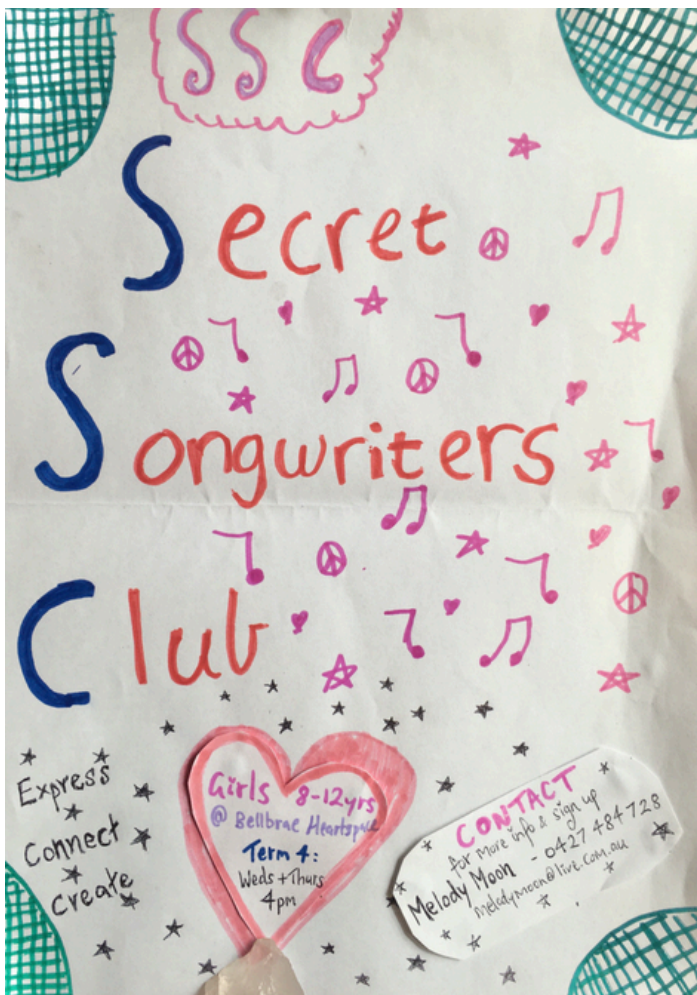 SSC
Secret
Songwriters
Club
Express
Connect
Create
Girls 8-12yrs
@ Bellbrae Heartspace
Term 4:
Weds + Thurs
4pm
CONTACT
for more info & sign up
Melody Moon - 0427 484 728
melodymoon@live.com.au